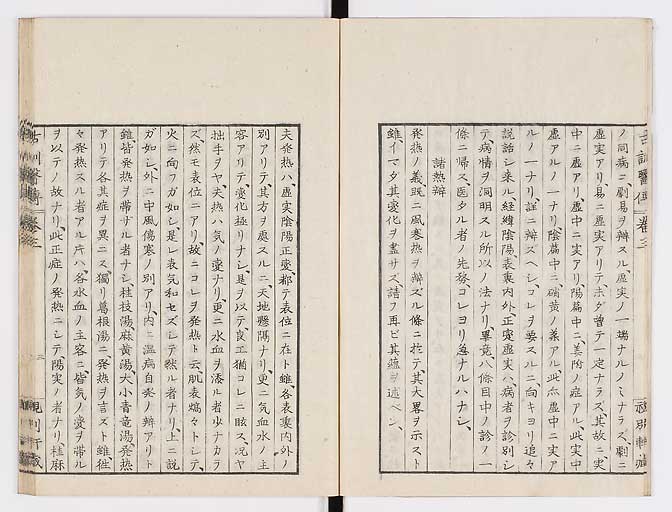 古訓醫傳 卷三
ノ同病ニ劇易ヲ辨スル、虛実ノ一端ナルノミナラズ、劇ニ
虛実アリ、易ニ虛実アリテ、ホダ曽テ一定ナラズ、其故ニ、実
中ニ虛アリ、虛中ニ実アリ、陽篇中ニ、姜附ノ症アル、此実中
虛アルノ一ナリ、陰篇中ニ、硝黄ノ薬アル、此虛中ニ実ア
ルノ一ナリ、註ニ辨ズベシ、コレヲ要スルニ、向キヨリ追々
説話シ来ル、経緯陰陽、表裏内外、正変虛実ハ、病者ヲ診別シ
テ、病情ヲ洞明スル所以ノ法ナリ、畢竟八條目中ノ診ノ一
條ニ帰ス、医タル者ノ先務、コレヨリ急ナルハナシ、
諸熱辨
発熱ノ義、既ニ風寒熱ヲ辨ズル條ニ於テ、其大畧ヲ示スト
雖イマダ其変化ヲ盡サズ、請フ再ビ其蘊ヲ述ベン、
夫発熱ハ、虛実陰陽正変、都テ表位ニ在ト雖、各表裏内外ノ
別アリテ、其方ヲ處スルニ、天地懸隔ナリ、更ニ気血水ノ主
容アリテ、変化極リナシ、是ヲ以テ良工猶コレニ眩ス、况ヤ
拙手ヲヤ、夫熱ハ気ノ変ナリ、更ニ水血ヲ添ル者少ナカラ
ズ、然モ表位ニアリ、故ニコレヲ発熱ト云、肌表熇々トシテ、
火ニ向フガ如シ、是レ表気和セズシテ然ル者ナリ、上ニ説
ガ如シ、外ニ中風傷寒ノ別アリ、内ニ温病自発ノ辨アリト
雖、皆発熱ヲ帯ザル者ナシ、桂枝湯、麻黄湯、大小青竜湯、発熱
アリテ、各其症ヲ異ニス、獨リ葛根湯ニ発熱ヲ言ズト雖、往
々発熱スル者アル片ハ、各水血ノ主客ニ、皆気ノ変ヲ帯ル
ヲ以テノ故ナリ、此正症ノ発熱ニシテ、陽実ノ者ナリ、桂麻